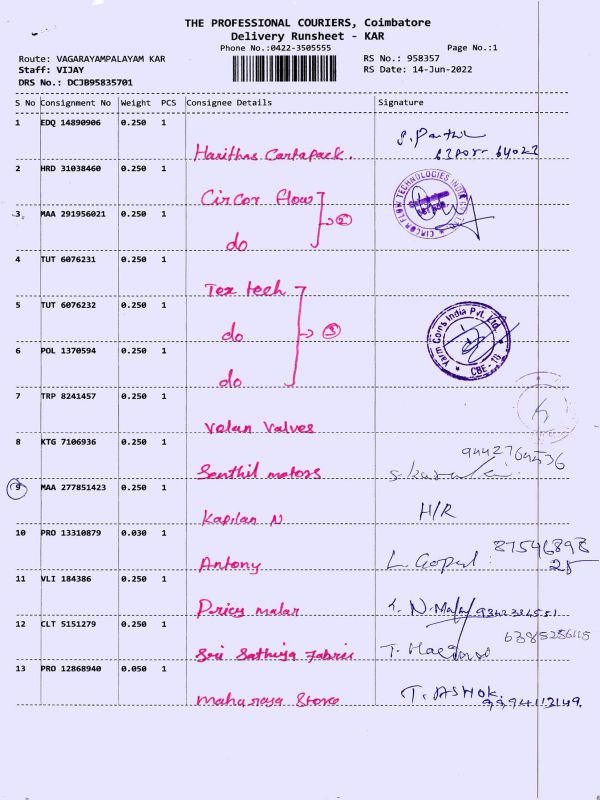 THE PROFESSIONAL COURIERS, Coimbatore
Delivery Runsheet - KAR
Phone No.:0422-3505555 Page No.:1
Route: VAGARAYAMPALAYAM KAR RS No.: 958357
Staff: VIJAY RS Date: 14-Jun-2022
DRS No.: DCJB95835701
S No Consignment No Weight PCS Consignee Details Signature
1 EDQ 14890906 0.250 1
2 HRD 31038460 0.250 1
Circor flow
3 MAA 291956021 0.250 1
do
CIRCOR FLOW TECHNOLOGIES INDIA
4 TUT 6076231 0.250 1
Tex tech
5 TUT 6076232 0.250 1
do 3
Yarm Coms India Pvt. Ltd.
CBE - 16
6 POL 1370594 0.250 1
do
7 TRP 8241457 0.250 1
Velan Valves
8 KTG 7106936 0.250 1
Senthil motors
9 MAA 277851423 0.250 1
Kapilan N H/R
10 PRO 13310879 0.030 1
Antony L. Gopal
11 VLI 184386 0.250 1
malar
12 CLT 5151279 0.250 1 6385286115
Sri Sathiya Fabric
13 PRO 12868940 0.050 1
Maharaja Store T. ASHOK.